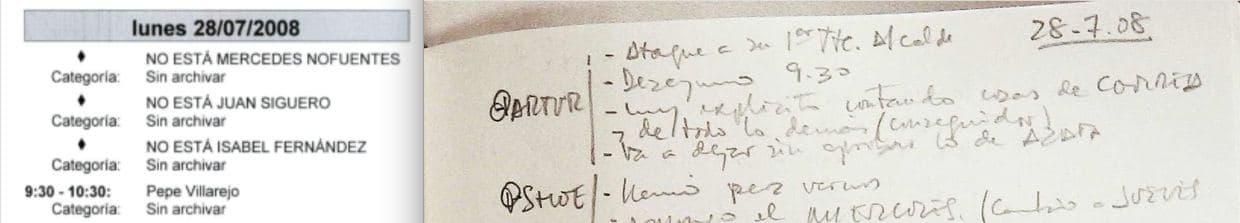 lunes 28/07/2008
♦ NO ESTÁ MERCEDES NOFUENTES
Categoría: Sin archivar
♦ NO ESTÁ JUAN SIGUERO
Categoría: Sin archivar
♦ NO ESTÁ ISABEL FERNÁNDEZ
Categoría: Sin archivar
9:30 - 10:30: Pepe Villarejo
Categoría: Sin archivar
28-7.08
- Ataque a su 1er Tte. Alcalde
- Desayuno 9.30
ARTUR - muy explícito contando cosas de CORREA
y de todo lo demás (conseguidor)
- Va a dejar sin aprobar lo de
- para vernos
el MIERCOLES. (Cambio a JUEVES